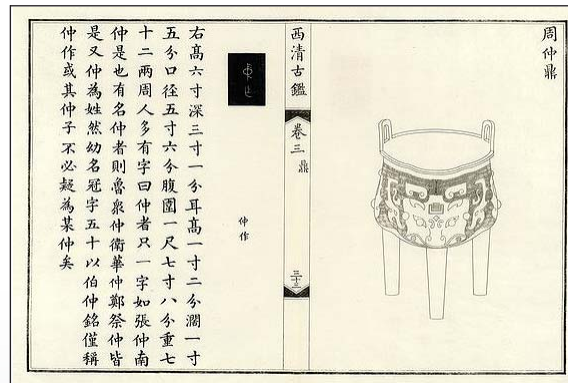 周仲鼎
西清古鑑
卷三
鼎
仲作
右高六寸深三寸一分耳高一寸二分濶一寸
五分口徑五寸六分腹圍一尺七寸八分重七
十二兩周人多有字曰仲者只一字如張仲南
仲是也有名仲者則魯衆仲衛華仲鄭祭仲皆
是又仲為姓然幼名冠字五十以伯仲銘僅稱
仲作或其仲子不必疑為某仲矣